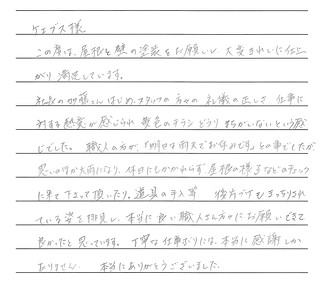 ケェブス様
この度は、屋根と壁の塗装をお願いし 大変きれいに仕上
がり 満足しています。
はじめ、スタッフの方々の 礼儀の正しさ 仕事に
対する熱意が感じられ チラシ どうり まちがいないという感
じでした。 職人の方が、「明日は雨天でお休みです」との事でしたが
思いのほか大雨になり、休日にもかかわらず、屋根の様子などのチェック
に来て下さって頂いたり、道具の手入等 後片づけもきっちりされ
ている姿を拝見し、本当に良い職人さん方にお願いできて
良かったと思っています。 丁寧な仕事ぶりには、本当に感謝しか
ありません。 本当にありがとうございました。